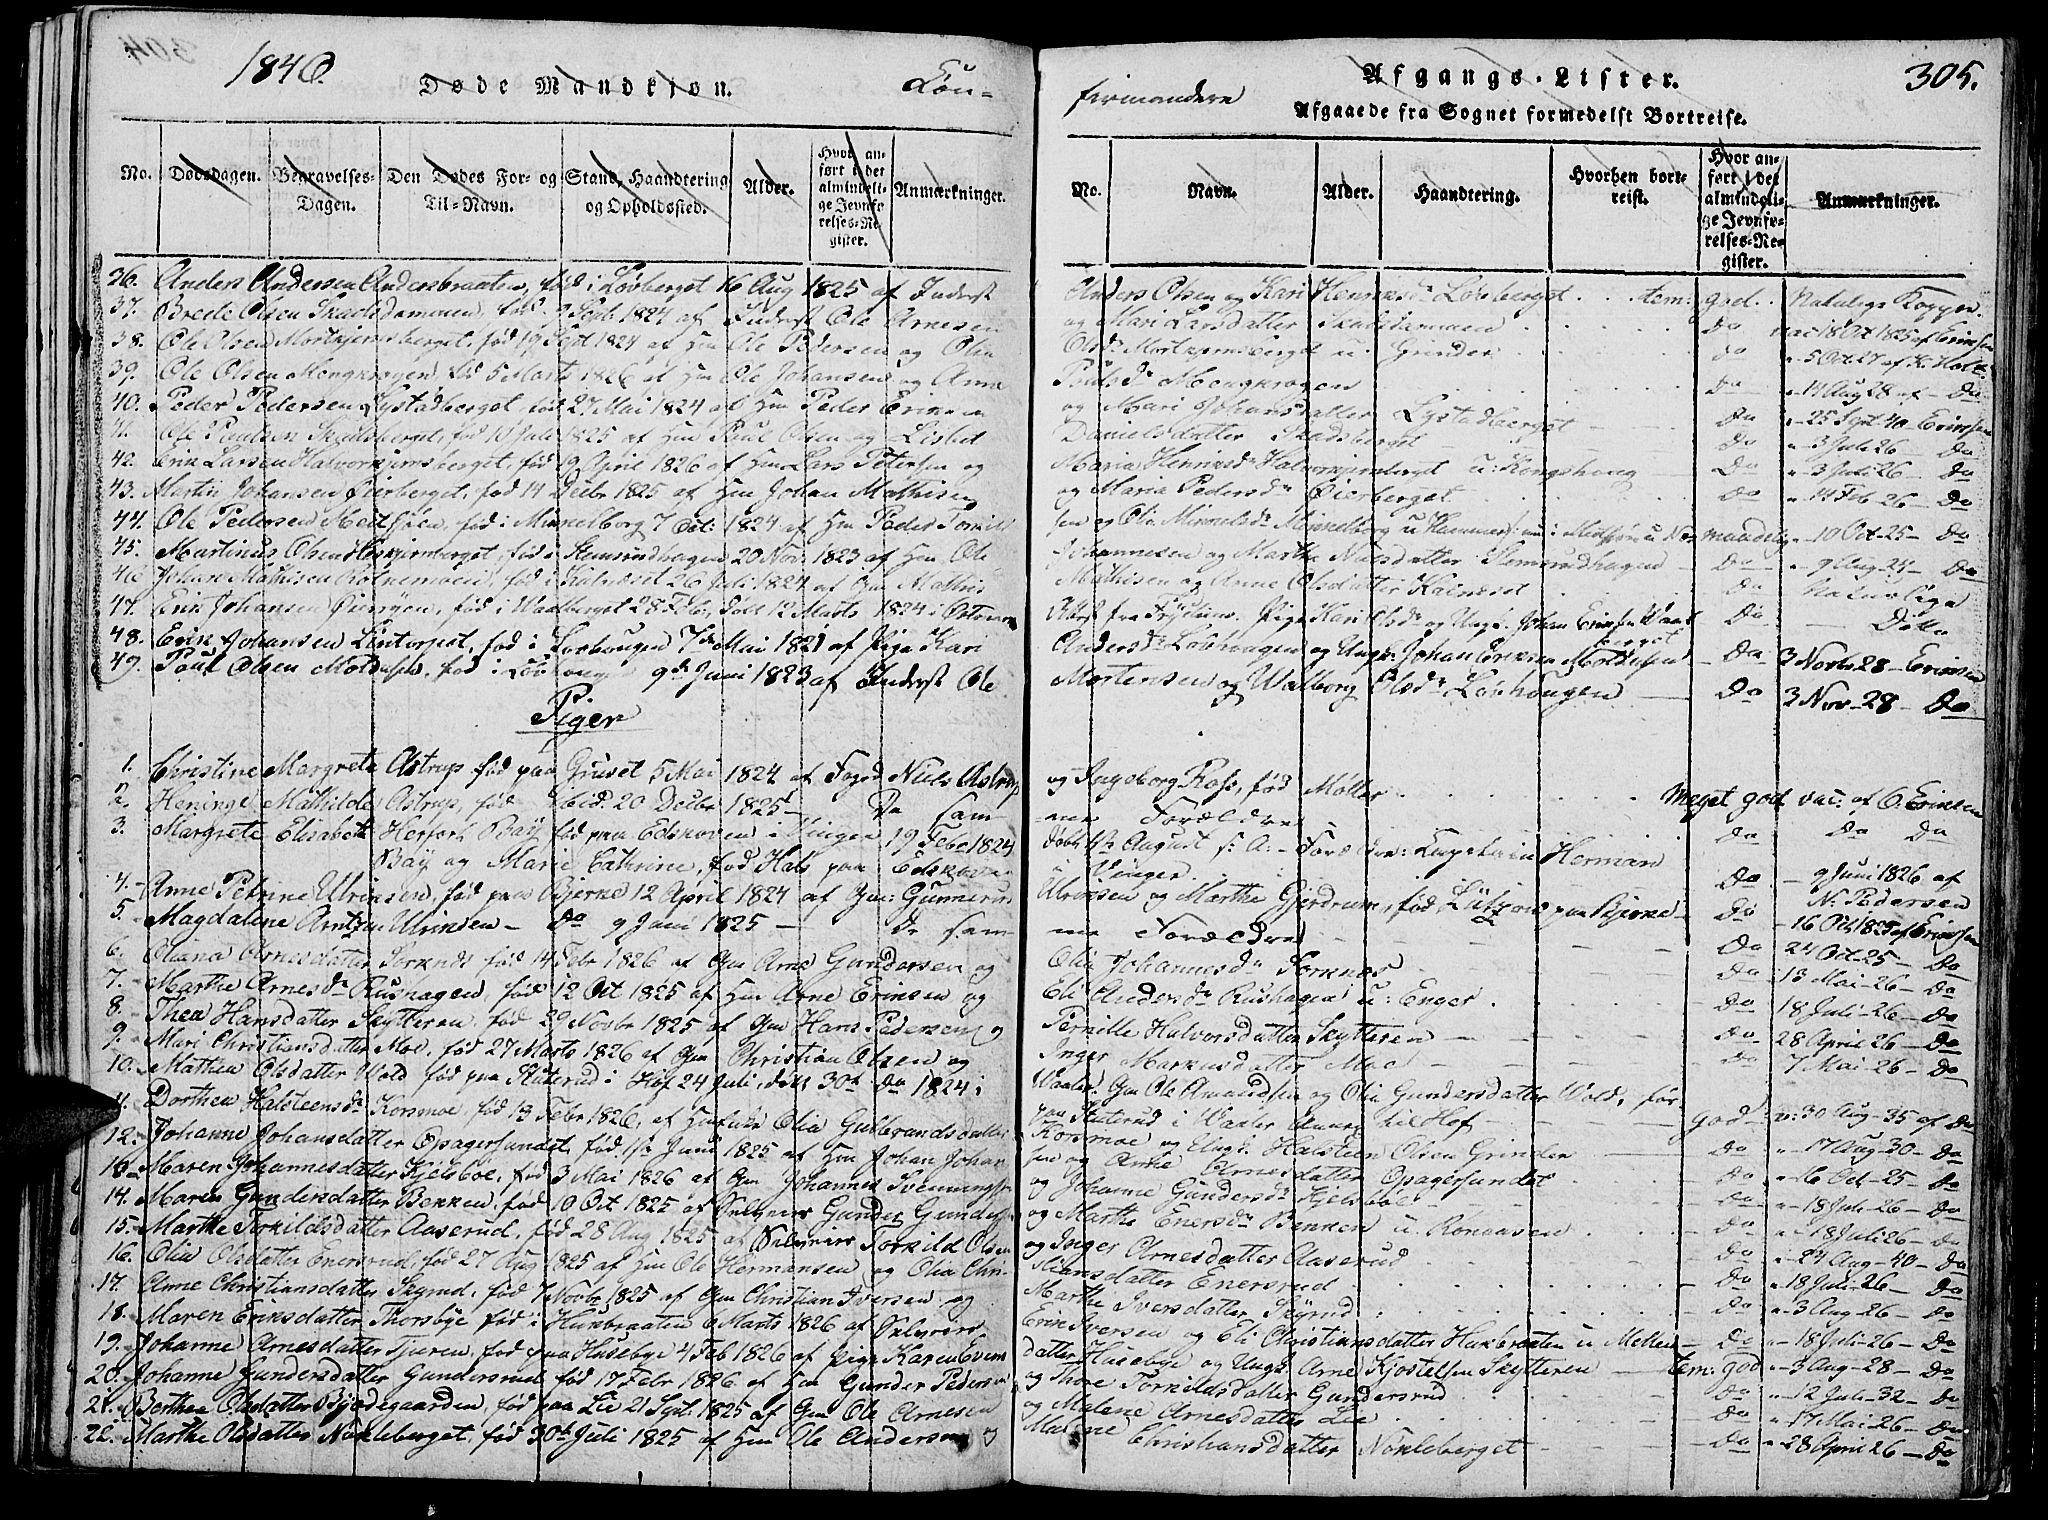 1840.
Døde Mandkjøn.
Con-
No.
Dødsdagen.
Begravelses-Dagen.
Den Dødes For- og Til-Navn.
Stand, Haandtering og Opholdssted.
Alder.
Hvor anført i det almindelige Jevnførelses-Register.
Anmærkninger.
36. Anders Andersen Andersbraaten, fød i Løvberget 16 Aug 1825 af Inderst
37. Brede Olsen Skadsdammen, fød 9 Septb 1824 af Inderst Ole Arnesen
38. Ole Olsen Mortkjernsberget, fød 19 Sept 1824 af Hm Ole Pedersen og Olia
39. Ole Olsen Mengkrogen fød 5 Marts 1826 af Hm Ole Johansen og Anne
40. Peder Pedersen Lystadberget, fød 27 Mai 1824 af Hm Peder Eriksen
41. Ole Paulsen Skadsberget, fød 10 Juli 1825 af Hm Paul Olsen og Lisbet
42. Erik Larsen Halvorkjernsberget, fød 19 April 1826 af Hm Lars Petersen og
43. Martin Johansen Øierberget, fød 14 Decbr 1825 af Hm Johan Mathisen
44. Ole Pedersen Meitsjøen, fød i Minkelborg 7 Oct: 1824 af Hm Peder Torkils
45. Martinus Olsen Heskjernberget, fød i Stemsrudhagen 20 Nov: 1823 af Hm Ole
46 Johan Mathisen Kolnemoen, fød i Kalnæset 26 Juli 1824 af Gm Mathis
47. Erik Johansen Øieryen, fød i Waalberget 28 Feb, døbt 12 Marts 1824 i Østmark
48. Erik Johansen Lintorpet, fød i Lovhougen 7de Mai 1821 af Pige Kari
49. Paul Olsen Moldusen, fød i Løvhoug 9de Juni 1823 af Inderst Ole
Piger
1. Christine Margrete Astrup fød paa Gruset 5 Mai 1824 af Foged Niels Astrup
2. Heninge Mathilde Astrup, fød ibid. 20 Decbr 1825 - Do sam-
3. Margrete Elisabeth Herfort Bay fød paa Edskoven i Vinger 19 Febr 1824
Bay og Marie Cathrine, fød Hals paa Edskoven
4. Anne Petrine Ulriksen, fød paa Bjerke 12 April 1824 af Gm: Gunnerius
5. Magdalene Arntzen Ulriksen - Do 9 Juni 1825 - Do sam-
6. Oliana Arnesdatter Sorknæs fød 14 Febr 1826 af Gm Arne Gundersen og
7. Marthe Arnesdr Rushagen fød 12 Oct 1825 af Hm Arne Eriksen og
8. Thea Hansdatter Skytteren, fød 29 Novbr 1825 af Gm Hans Pedersen og
9. Mari Christiansdatter Moe, fød 27 Marts 1826 af Gm Christian Olsen og
10. Mathea Olsdatter Wold fød paa Stuterud i Hof 24 Juli, døbt 30te Do 1824 i
11. Dorthea Halsteensdr Korsmoe, fød 13 Febr 1826, af Huskone Olia Gulbrandsdatter
12. Johanne Johansdatter Opagersundet, fød 1ste Juni 1825 af Hm Johan Johan
13. Maren Johannesdatter Kjelsboe, fød 3 Mai 1826 af Gm Johannes Svenningsen
14. Maren Gundersdatter Bekken, fød 10 Oct 1825 af Selveier Gunder Gundersen
15. Marthe Torkildsdatter Aaserud, fød 28 Aug 1825 af Selveier Torkild Olsen
16. Olia Olsdatter Enersrud, fød 27 Aug 1825 af Hm Ole Hermansen og Olia Chri-
17. Anne Christiansdatter Skyrud, fød 7 Novbr 1825 af Gm Christian Iversen og
18. Maren Eriksdatter Thorsbye fød i Hukbraaten 6 Marts 1826 af Selveier
19. Johanne Arnesdatter Tjuren, fød paa Husebye 4 Feb 1826 af Pige Karen Evens
20. Johanne Gundersdatter Gundersrud fød 17 Febr 1826 af Hm Gunder Pedersen
21. Berthea Olsdatter Bjødegaarden, fød paa Lie 21 Sept. 1825 af Gm Ole Arnesen
22. Marthe Olsdatter Nokleberget, fød 30te Juli 1825 af Hm Ole Andersen og
firmandere
Afgangs-Lister.
305.
Afgaaede fra Sognet formedelst Bortreise.
No.
Navn.
Alder.
Haandtering.
Hvorhen bortreist.
Hvor anført i det almindelige Jevnførelses-Register.
Anmærkninger.
Anders Olsen og Kari Henriksdr Løvberget . . . tem: god . . Naturlige Kopper.
og Mari Larsdatter Skadsdammen Do vac 18 Oct 1825 af Eriksen
Olsdr Mortkjernsberget u. Grinder Do " 5 Oct 27 af K. Holt
Poulsdr Mengkrogen Do " 14 Aug 28 af Do
og Mari Johansdatter Lystadberget Do " 25 Sept 40 Eriksen
Danielsdatter Skadsberget Do " 3 Juli 26 Do
Maria Henriksdr Halvorkjernberget u: Kongshoug Do " 3 Juli 26 Do
og Maria Pedersdr Øierberget Do " 14 Feb 26 Do
sen og Olia Mikkelsdr Minkelborg u Hammer, nu i Meitsjøen u Nor maadelig " 10 Oct 25 - Do
Johannesen og Marthe Nielsdatter Stemsrudhagen Do " 9 Aug 24 - Do
Mathisen og Anne Olsdatter Kalneset Do Naturlige
Attest fra Fryksende. Pige Kari Olsdr og Ungk. Johan Eriksen Waalberget Do - Ditto
Andersdr Løvhougen og Ungk. Johan Eriksen Moldusen Do 3 Novbr 28 - Eriksen
Mortensen og Walborg Olsdr Løvhougen - Do 3 Nov - 28 - Do
og Ingeborg Ross, fød Møller . . . Meget god vac: af O. Eriksen
me Forældre Do Do Do
døbt 1ste August s: A: - Forældre: Capitain Herman
Vinger. Do - 9 Juni 1826 af
Ulriksen og Marthe Gjerdrum, fød Lützow paa Bjerke - Do N. Pedersen
me Forældre Do 16 Oct 1825 af Eriksen
Olia Johannesdr Sorknæs Do 24 Oct 25 - Do
Eli Andersdr Rushagen u: Enger Do 13 Mai - 26 - Do
Pernille Halvorsdatter Skytteren Do 18 Juli - 26 - Do
Inger Markusdatter Moe Do 28 April 26 - Do
Waaler. Gm Ole Amundsen og Olia Gundersdatter Wold, før- 7 Mai - 26 - Do
paa Stuterud i Waaler Annex til Hof god v: 30 Aug - 35 af Do
Korsmoe og Ungk. Halsteen Olsen Grinder Do " 17 Aug - 30 - Do
sen og Anne Arnesdatter Opagersundet Do " 16 Oct - 25 - Do
og Johanne Gundersdr Kjelsboe Do " 18 Juli - 26 - Do
og Marthe Enersdr Bekken u. Ronaasen Do " 18 Juli 26 - Do
og Inger Arnesdatter Aaserud Do " 24 Aug - 40 - Do
stiansdatter Enersrud Do " 18 Juli - 26 - Do
Marthe Iversdatter Skyrud Do " 3 Aug - 26 - Do
Erik Iversen og Eli Christiansdatter Hukbraaten u Mellem - Do " 18 Juli - 26 - Do
datter Husebye og Ungk. Arne Kjostelsen Skytteren - tem: god " 3 Aug - 28 - Do
og Thore Torkildsdatter Gundersrud Do " 12 Juli - 32 - Do
og Malene Arnesdatter Lie Do " 17 Mai - 26 - Do
Malene Christiansdatter Nokleberget Do " 28 April 26 - Do